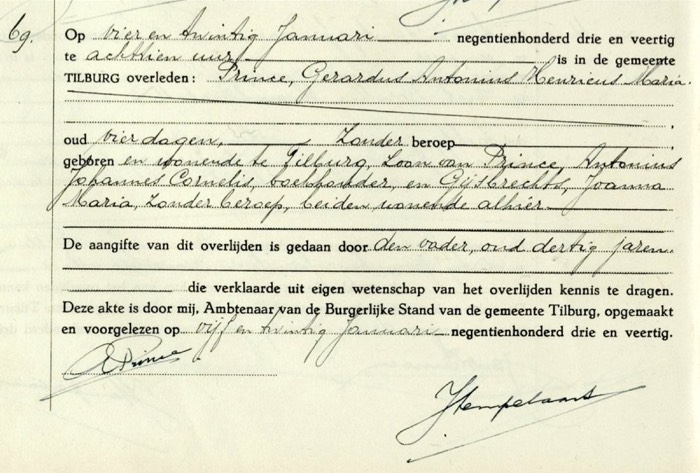 69.
Op vier en twintig Januari negentienhonderd drie en veertig
te achttien uur is in de gemeente
TILBURG overleden: Prince, Gerardus Antonius Henricus Maria.
oud vier dagen, Zonder beroep
geboren en wonende te Tilburg, Zoon van Prince, Antonius
Johannes Cornelis, boekhouder, en Gijsbrechts, Joanna
Maria, zonder beroep, beiden wonende alhier
De aangifte van dit overlijden is gedaan door den vader, oud dertig jaren,
die verklaarde uit eigen wetenschap van het overlijden kennis te dragen.
Deze akte is door mij, Ambtenaar van de Burgerlijke Stand van de gemeente Tilburg, opgemaakt
en voorgelezen op vijf en twintig Januari negentienhonderd drie en veertig.
Prince